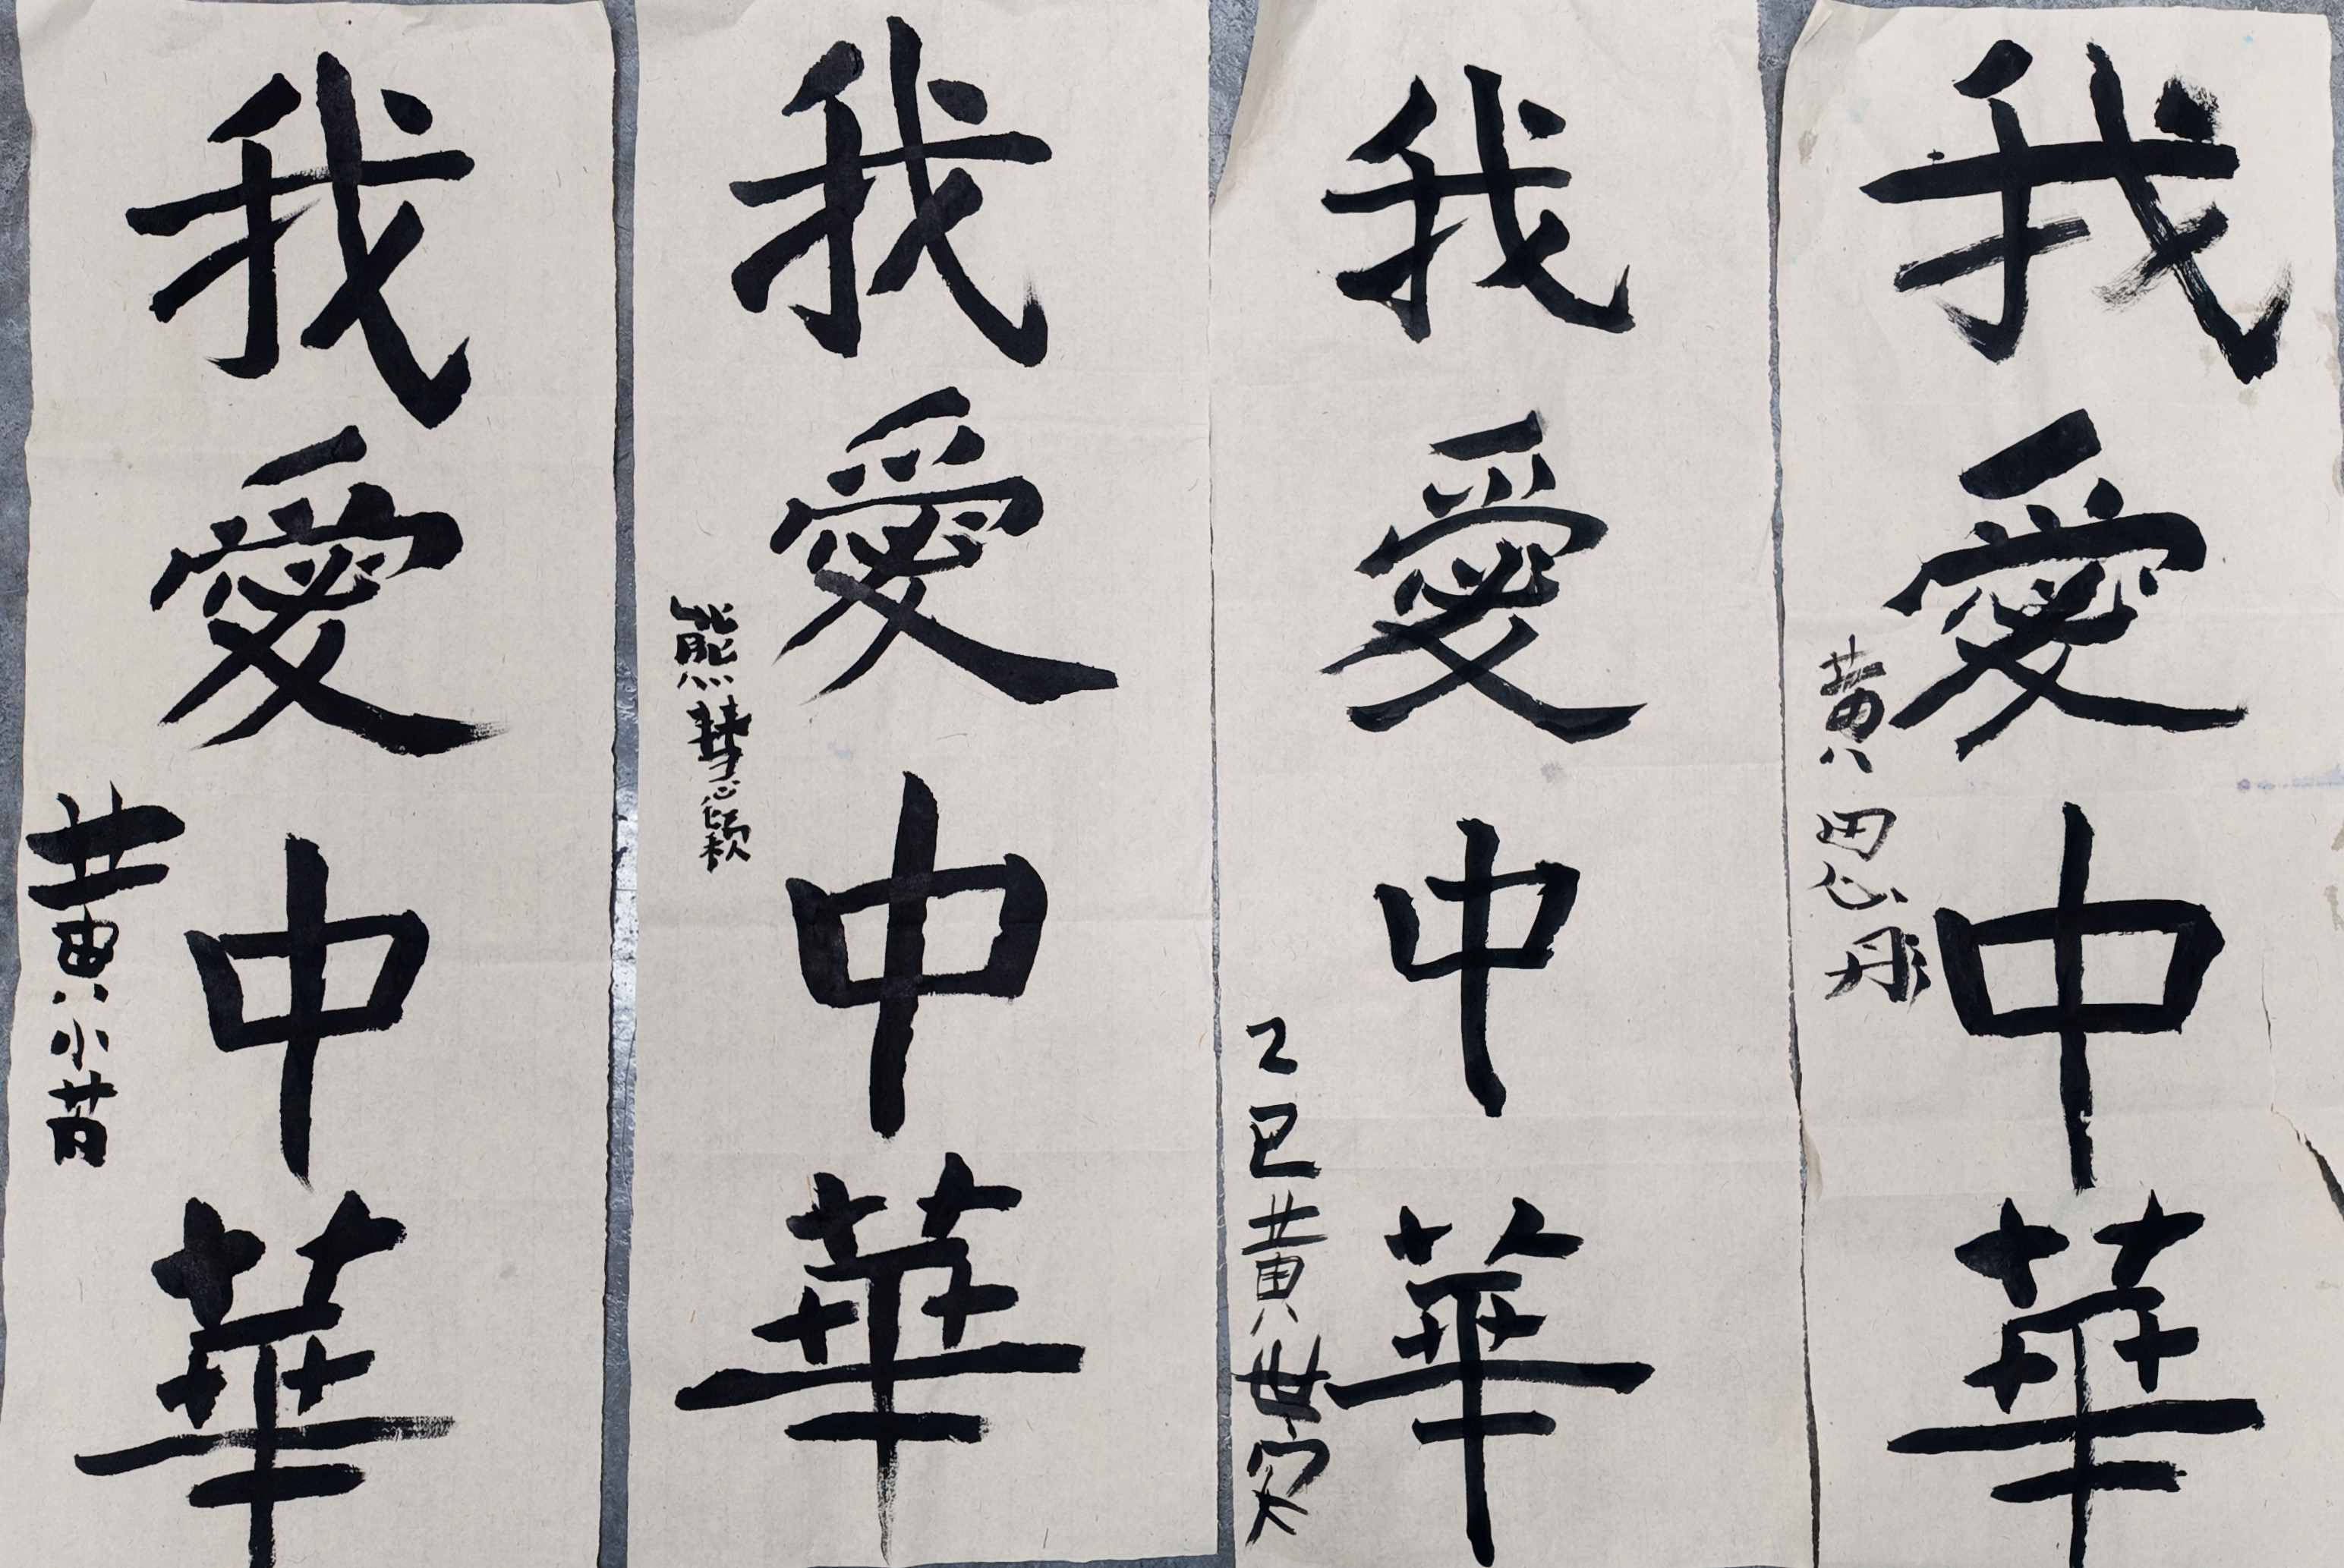 我愛中華
黄小苗
我愛中華
熊慧穎
我愛中華
乙巳黄世安
我愛中華
黄思彤